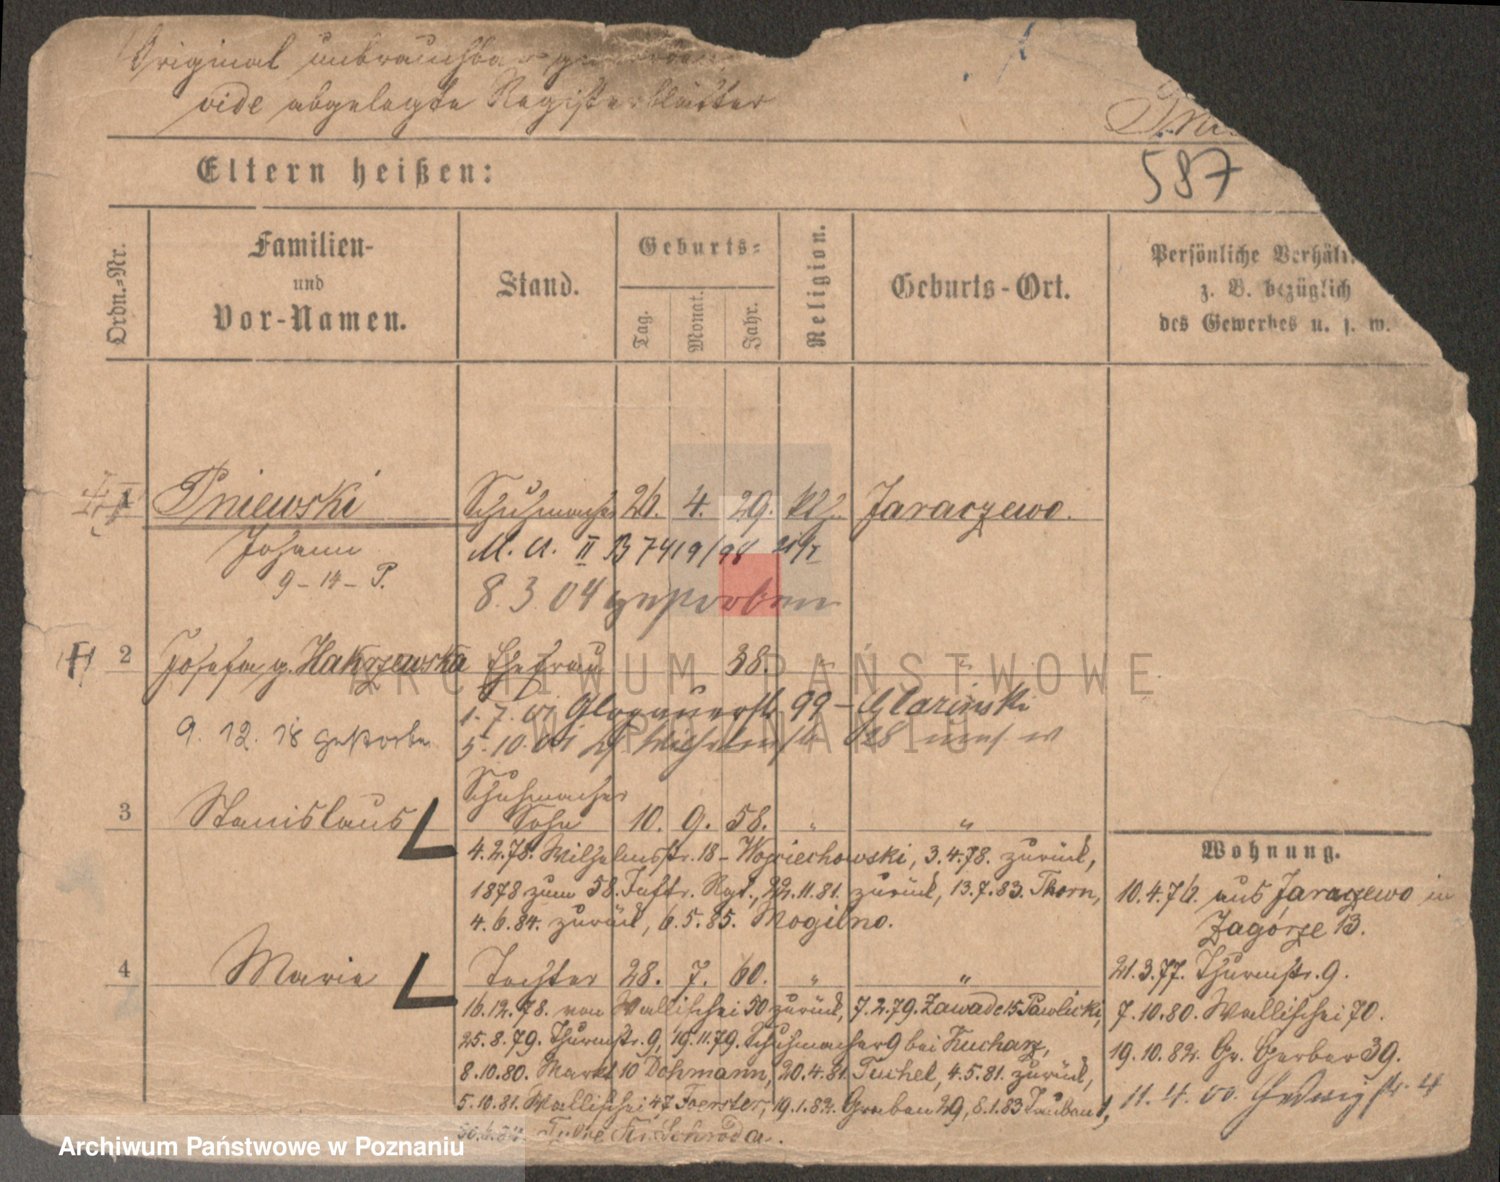 Original unbrauchbar
vide abgelegte Registerblätter
Pni
587
Eltern heißen:
Ordn.-Nr.
Familien-
und
Vor-Namen.
Stand.
Geburts-
Tag.
Monat.
Jahr.
Religion.
Geburts-Ort.
Persönliche Verhält
z. B. bezüglich
des Gewerbes u. s. w.
1 Pniewski Schuhmacher 26. 4. 29. kth. Jaraczewo.
Johann M. A. II B 7419/98
9-14-P. 8. 3. 04 gestorben
2 Josefa, g. Hakrzewska Ehefrau 38. " "
1. 7. 01 Glogauerstr. 99 - Marinski
9. 12. 18 gestorben 5. 10. 01
3 Stanislaus Schuhmacher
Sohn 10. 9. 58. " "
4.2.78. Wilhelmsstr. 18 - Woyciechowski, 3.4.78. zurück,
1878 zum 58. Inftr. Rgt., 22.11.81. zurück, 13.7.83. Thorn,
4.6.84. zurück, 6.5.85. Mogilno.
4 Marie Tochter 28. 7. 60. " "
16.12.78. von Wallischei 50 zurück, 7.2.79. Zawade 15 Pawlicki,
25.8.79. Thurmstr. 9, 19.11.79. Schuhmacher 9 bei Kucharz,
8.10.80. Markt 10 Dohmann, 20.4.81. Tuchel, 4.5.81. zurück,
5.10.81. Wallischei 47 Foerster, 19.1.82. Graben 29, 8.1.83 Tauben 1,
Schroda.
Wohnung.
10.4.76. aus Jaraczewo in
Zagórze 13.
21.3.77. Thurmstr. 9.
7.10.80. Wallischei 70.
19.10.82. Gr. Gerber 39.
11. 4. 00. Hedwigstr. 4
ARCHIWUM PAŃSTWOWE
W POZNANIU
Archiwum Państwowe w Poznaniu